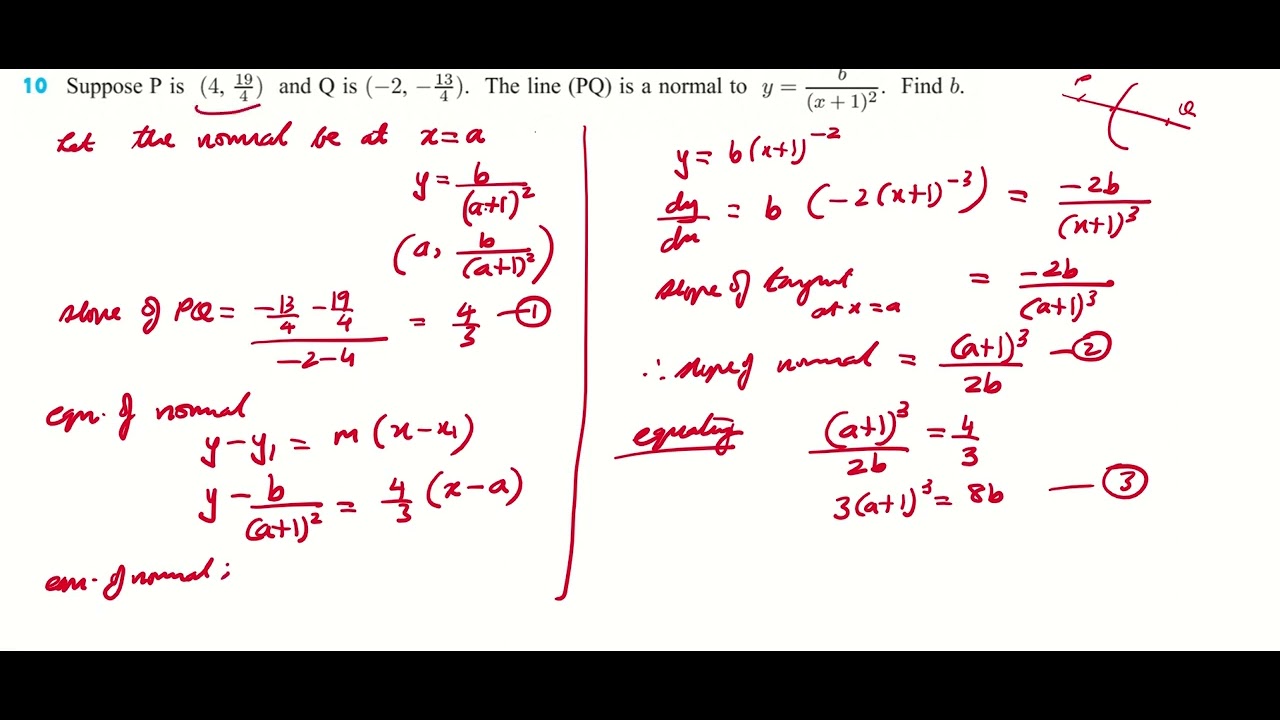 10 Suppose P is (4, 19/4) and Q is (−2, −13/4). The line (PQ) is a normal to y = b/(x + 1)². Find b.
P
Q
Let the normal be at x=a
y = b/(a+1)²
(a, b/(a+1)²)
slope of PQ = (−13/4 − 19/4)/(−2−4) = 4/3 —①
eqn. of normal
y−y₁ = m(x−x₁)
y − b/(a+1)² = 4/3 (x−a)
eqn. of normal ;
y = b(x+1)⁻²
dy/dx = b (−2(x+1)⁻³) = −2b/(x+1)³
slope of tangent at x=a = −2b/(a+1)³
∴ slope of normal = (a+1)³/2b —②
equating (a+1)³/2b = 4/3
3(a+1)³ = 8b —③